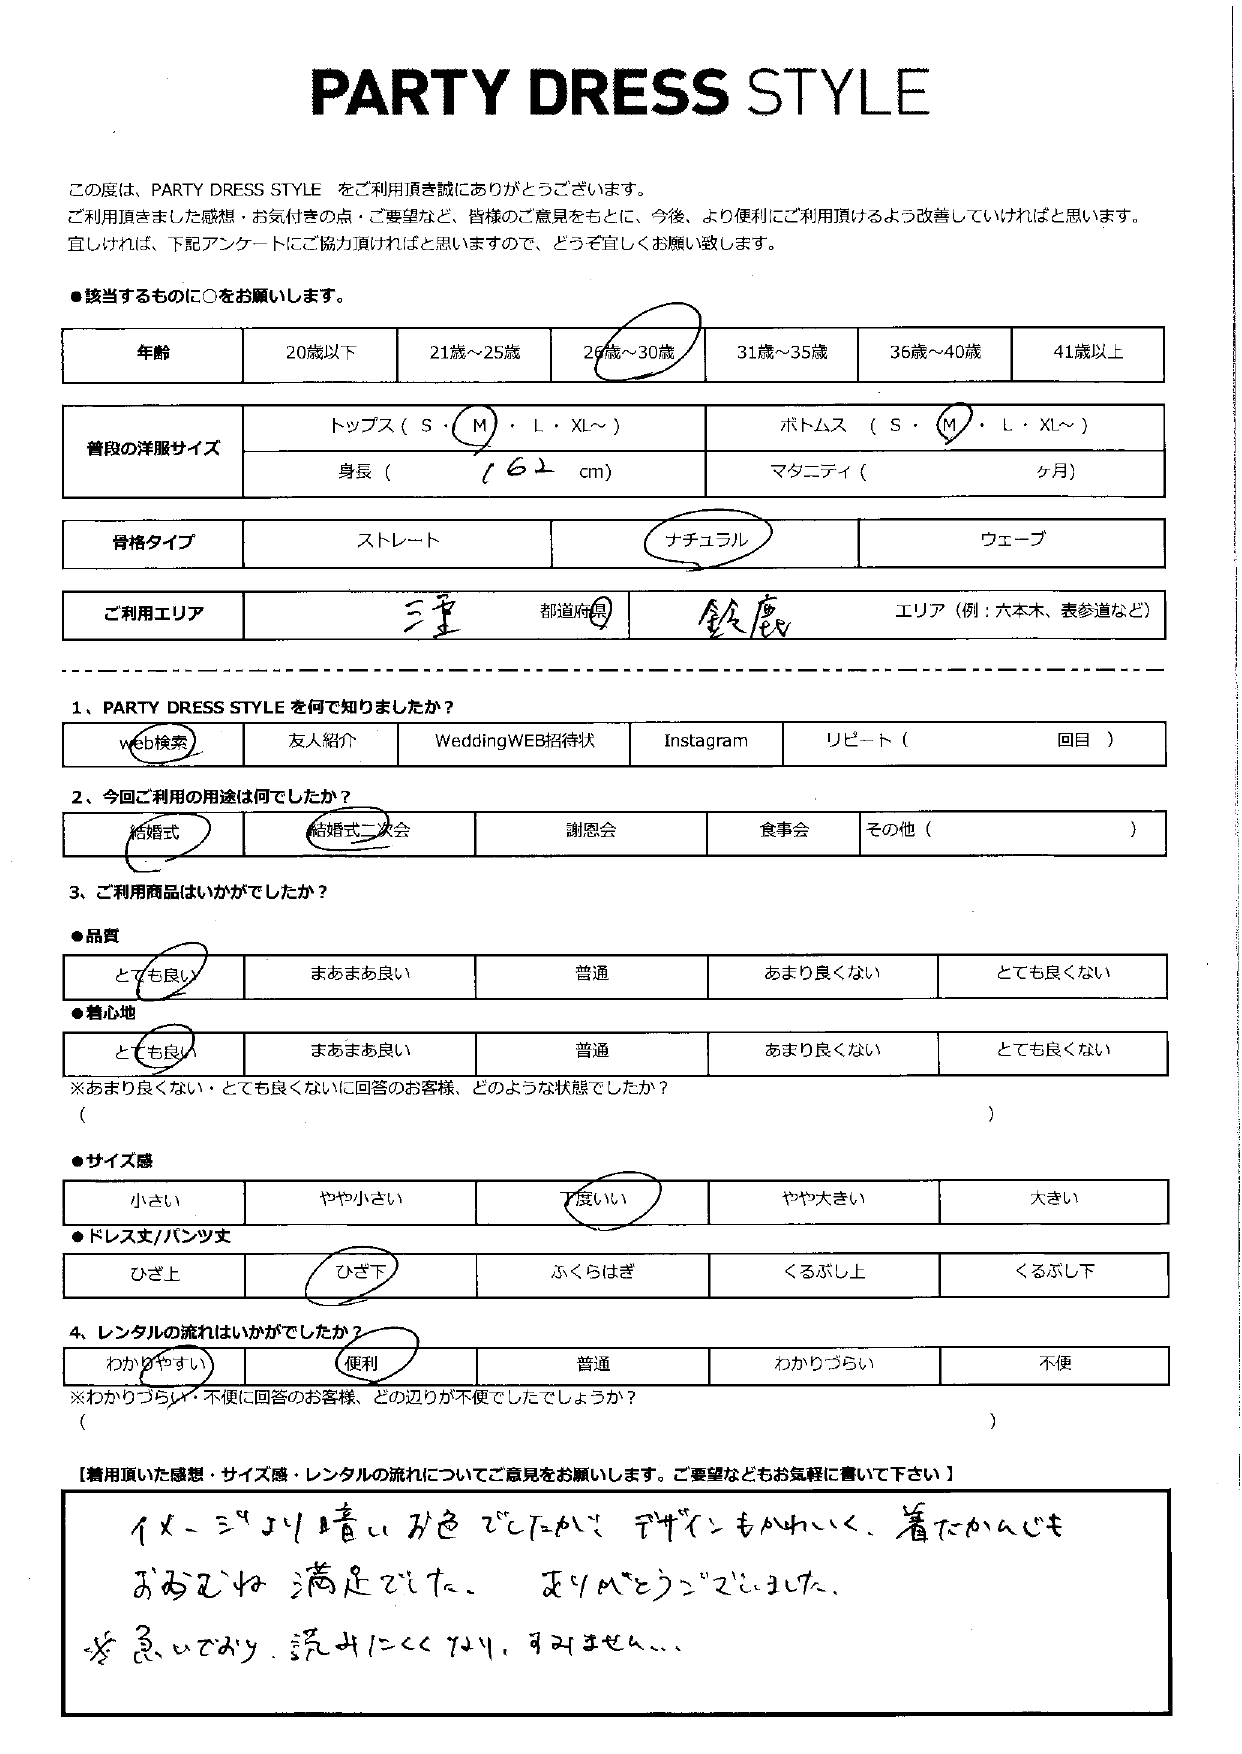 PARTY DRESS STYLE
この度は、PARTY DRESS STYLE をご利用頂き誠にありがとうございます。
ご利用頂きました感想・お気付きの点・ご要望など、皆様のご意見をもとに、今後、より便利にご利用頂けるよう改善していければと思います。
宜しければ、下記アンケートにご協力頂ければと思いますので、どうぞ宜しくお願い致します。
●該当するものに○をお願いします。
年齢 20歳以下 21歳～25歳 26歳～30歳 31歳～35歳 36歳～40歳 41歳以上
普段の洋服サイズ トップス ( S ・ M ・ L ・ XL～ ) ボトムス ( S ・ M ・ L ・ XL～ )
身長 ( 162 cm) マタニティ ( ヶ月)
骨格タイプ ストレート ナチュラル ウェーブ
ご利用エリア 三重 都道府県 鈴鹿 エリア（例：六本木、表参道など）
1、PARTY DRESS STYLE を何で知りましたか？
web検索 友人紹介 WeddingWEB招待状 Instagram リピート ( 回目 )
2、今回ご利用の用途は何でしたか？
結婚式 結婚式二次会 謝恩会 食事会 その他 ( )
3、ご利用商品はいかがでしたか？
●品質
とても良い まあまあ良い 普通 あまり良くない とても良くない
●着心地
とても良い まあまあ良い 普通 あまり良くない とても良くない
※あまり良くない・とても良くないに回答のお客様、どのような状態でしたか？
( )
●サイズ感
小さい やや小さい 丁度いい やや大きい 大きい
●ドレス丈/パンツ丈
ひざ上 ひざ下 ふくらはぎ くるぶし上 くるぶし下
4、レンタルの流れはいかがでしたか？
わかりやすい 便利 普通 わかりづらい 不便
※わかりづらい・不便に回答のお客様、どの辺りが不便でしたでしょうか？
( )
【着用頂いた感想・サイズ感・レンタルの流れについてご意見をお願いします。ご要望などもお気軽に書いて下さい 】
イメージより暗いお色でしたが、デザインもかわいく、着たかんじも
おおむね満足でした。 ありがとうございました。
※急いでおり、読みにくくなり、すみません...